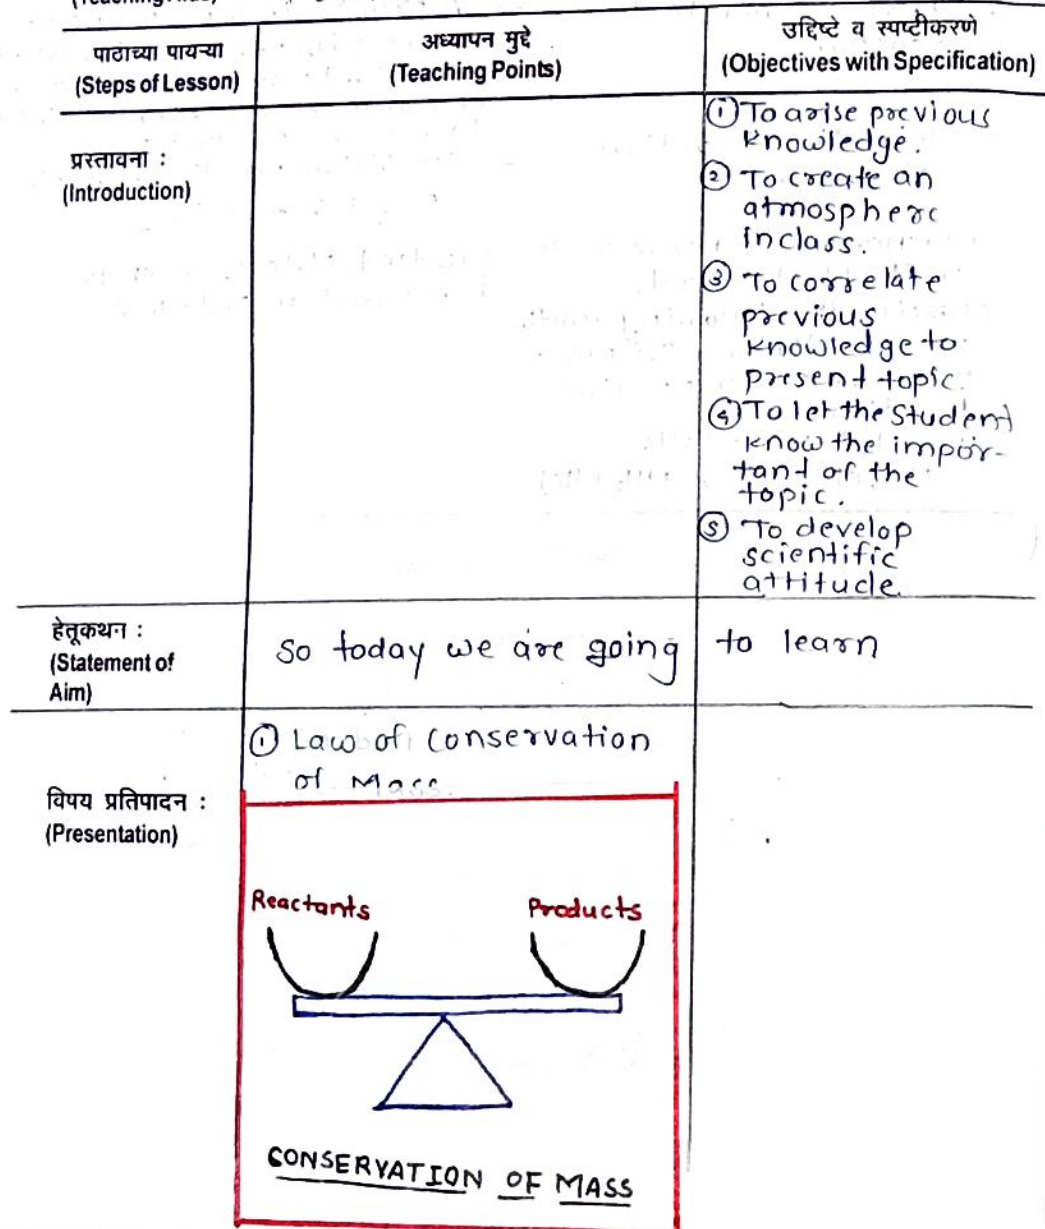 पाठाच्या पायऱ्या
(Steps of Lesson)
अध्यापन मुद्दे
(Teaching Points)
उद्दिष्टे व स्पष्टीकरणे
(Objectives with Specification)
प्रस्तावना :
(Introduction)
① To arise previous
knowledge.
② To create an
atmosphere
inclass.
③ To correlate
previous
knowledge to
present topic.
④ To let the Student
know the impor-
tant of the
topic.
⑤ To develop
scientific
attitude
हेतूकथन :
(Statement of
Aim)
So today we are going to learn
विषय प्रतिपादन :
(Presentation)
① Law of Conservation
of Mass.
Reactants
Products
CONSERVATION OF MASS